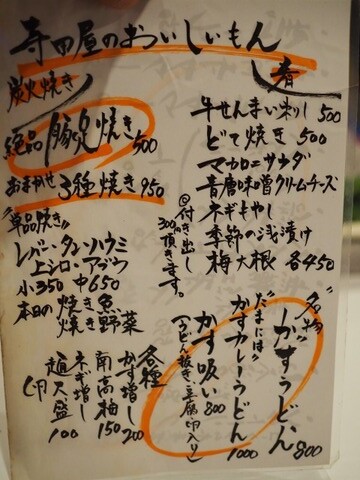 寺田屋のおいしいもん
炭火焼き
絶品 豚足焼き 500
おまかせ 3種焼き 950
"単品焼き"
レバー・タン・ハツ・ウミ
上シロ・アブラ
小350 中650
本日の焼き魚
焼き野菜
牛せんまい刺し 500
どて焼き 500
マカロニサラダ
青唐味噌クリームチーズ
ネギもやし
季節の浅漬け
梅大根 各450
◎付き出し
300円頂きます。
"名物"
かすうどん 800
"たまには"
かすカレーうどん 1000
かす吸い 800
(うどん抜き、豆腐・卵入り)
各種
かす増し 200
南高梅 150
ネギ増し
麺大盛 100
卵